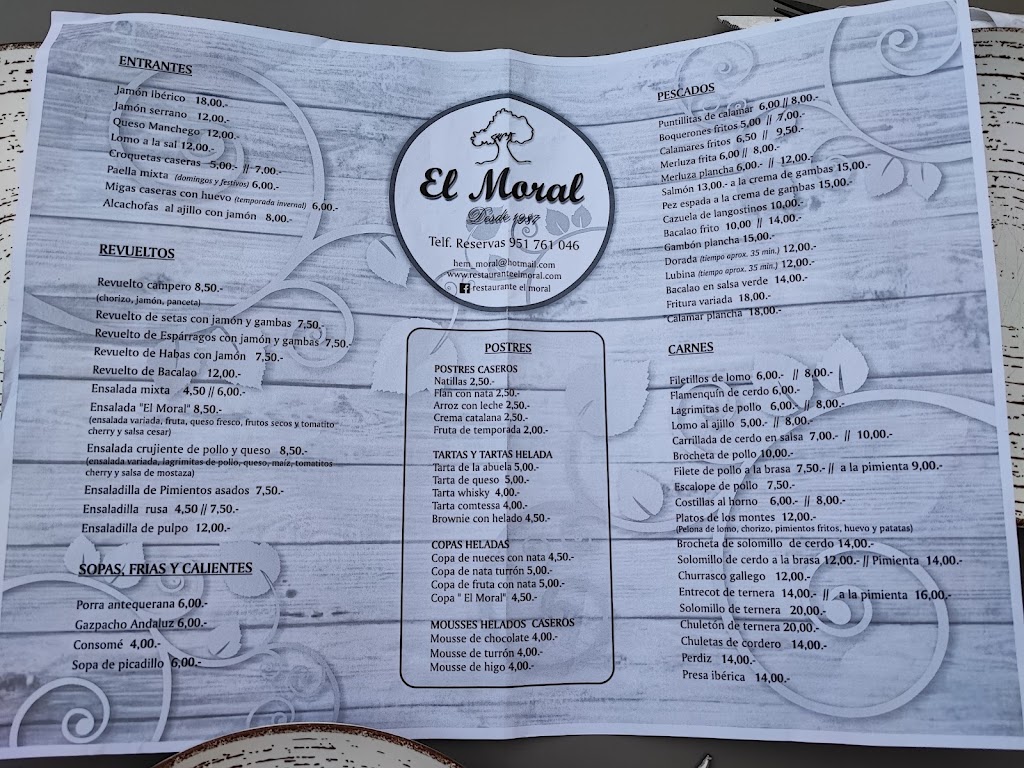 ENTRANTES
Jamón ibérico 18,00.-
Jamón serrano 12,00.-
Queso Manchego 12,00.-
Lomo a la sal 12,00.-
Croquetas caseras 5,00.- // 7,00.-
Paella mixta (domingos y festivos) 6,00.-
Migas caseras con huevo (temporada invernal) 6,00.-
Alcachofas al ajillo con jamón 8,00.-
REVUELTOS
Revuelto campero 8,50.-
(chorizo, jamón, panceta)
Revuelto de setas con jamón y gambas 7,50.-
Revuelto de Espárragos con jamón y gambas 7,50.-
Revuelto de Habas con Jamón 7,50.-
Revuelto de Bacalao 12,00.-
Ensalada mixta 4,50 // 6,00.-
Ensalada "El Moral" 8,50.-
(ensalada variada, fruta, queso fresco, frutos secos y tomatito
cherry y salsa cesar)
Ensalada crujiente de pollo y queso 8,50.-
(ensalada variada, lagrimitas de pollo, queso, maiz, tomatitos
cherry y salsa de mostaza)
Ensaladilla de Pimientos asados 7,50.-
Ensaladilla rusa 4,50 // 7,50.-
Ensaladilla de pulpo 12,00.-
SOPAS, FRIAS Y CALIENTES
Porra antequerana 6,00.-
Gazpacho Andaluz 6,00.-
Consomé 4,00.-
Sopa de picadillo 6,00.-
El Moral
Desde 1987
Telf. Reservas 951 761 046
hem_moral@hotmail.com
www.restauranteelmoral.com
restaurante el moral
POSTRES
POSTRES CASEROS
Natillas 2,50.-
Flan con nata 2,50.-
Arroz con leche 2,50.-
Crema catalana 2,50.-
Fruta de temporada 2,00.-
TARTAS Y TARTAS HELADA
Tarta de la abuela 5,00.-
Tarta de queso 5,00.-
Tarta whisky 4,00.-
Tarta comtessa 4,00.-
Brownie con helado 4,50.-
COPAS HELADAS
Copa de nueces con nata 4,50.-
Copa de nata turrón 5,00.-
Copa de fruta con nata 5,00.-
Copa " El Moral" 4,50.-
MOUSSES HELADOS CASEROS
Mousse de chocolate 4,00.-
Mousse de turrón 4,00.-
Mousse de higo 4,00.-
PESCADOS
Puntillitas de calamar 6,00 // 8,00.-
Boquerones fritos 5,00 // 7,00.-
Calamares fritos 6,50 // 9,50.-
Merluza frita 6,00 // 8,00.-
Merluza plancha 6,00.- // 12,00.-
Salmón 13,00.- a la crema de gambas 15,00.-
Pez espada a la crema de gambas 15,00.-
Cazuela de langostinos 10,00.-
Bacalao frito 10,00 // 14,00.-
Gambón plancha 15,00.-
Dorada (tiempo aprox. 35 min.) 12,00.-
Lubina (tiempo aprox. 35 min.) 12,00.-
Bacalao en salsa verde 14,00.-
Fritura variada 18,00.-
Calamar plancha 18,00.-
CARNES
Filetillos de lomo 6,00.- // 8,00.-
Flamenquín de cerdo 6,00.-
Lagrimitas de pollo 6,00.- // 8,00.-
Lomo al ajillo 5,00.- // 8,00.-
Carrillada de cerdo en salsa 7,00.- // 10,00.-
Brocheta de pollo 10,00.-
Filete de pollo a la brasa 7,50.- // a la pimienta 9,00.-
Escalope de pollo 7,50.-
Costillas al horno 6,00.- // 8,00.-
Platos de los montes 12,00.-
(Pelona de lomo, chorizo, pimientos fritos, huevo y patatas)
Brocheta de solomillo de cerdo 14,00.-
Solomillo de cerdo a la brasa 12,00.- // Pimienta 14,00.-
Churrasco gallego 12,00.-
Entrecot de ternera 14,00.- // a la pimienta 16,00.-
Solomillo de ternera 20,00.-
Chuletón de ternera 20,00.-
Chuletas de cordero 14,00.-
Perdiz 14,00.-
Presa ibérica 14,00.-